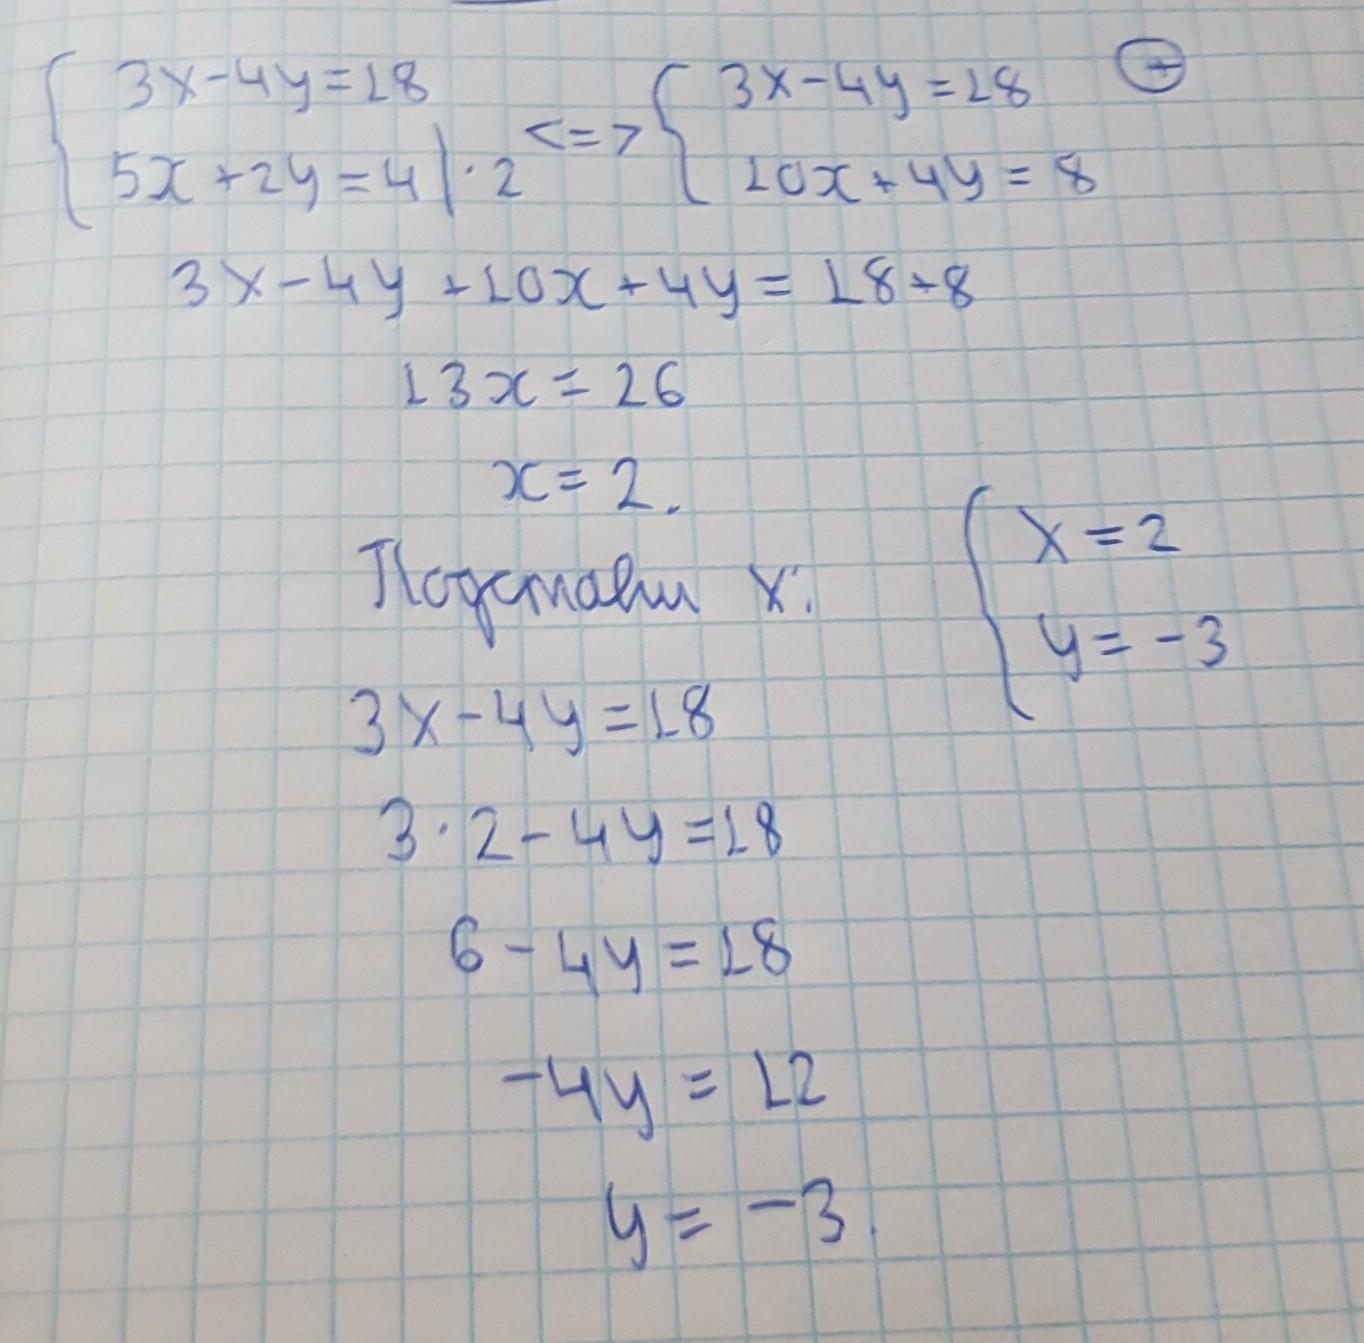 { 3x-4y=18 <=> { 3x-4y=18 ⊕
5x+2y=4 | ·2 10x+4y=8
3x-4y+10x+4y=18+8
13x=26
x=2.
Подставим x:
3x-4y=18
3·2-4y=18
6-4y=18
-4y=12
y=-3.
{ x=2
y=-3